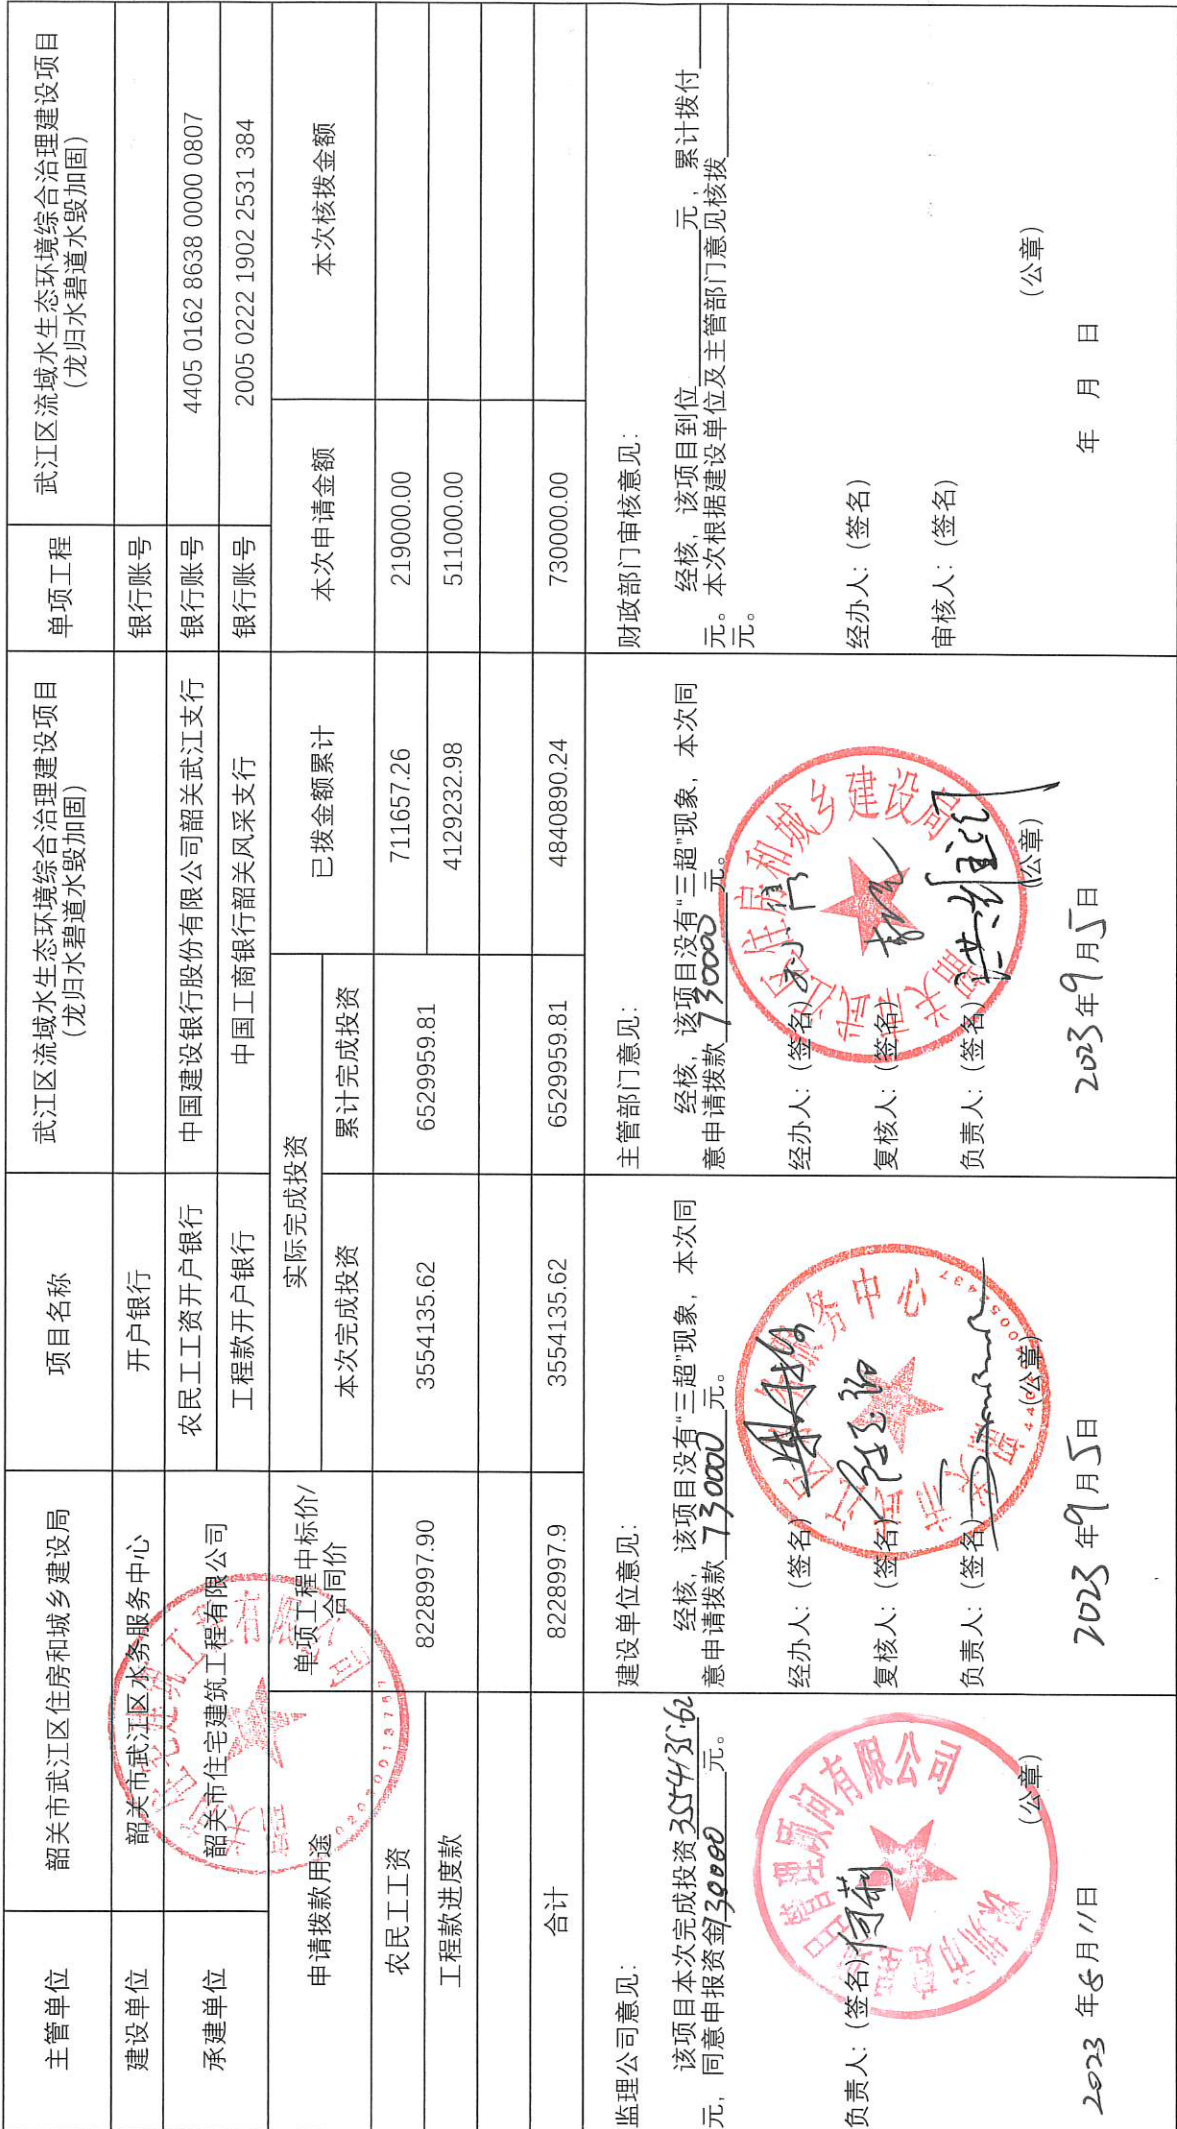 主管单位 韶关市武江区住房和城乡建设局 项目名称 武江区流域水生态环境综合治理建设项目 单项工程 武江区流域水生态环境综合治理建设项目
(龙归水碧道水毁加固) (龙归水碧道水毁加固)
建设单位 韶关市武江区水务服务中心 开户银行 银行账号
承建单位 韶关市住宅建筑工程有限公司 农民工工资开户银行 中国建设银行股份有限公司韶关武江支行 银行账号 4405 0162 8638 0000 0807
工程款开户银行 中国工商银行韶关风采支行 银行账号 2005 0222 1902 2531 384
申请拨款用途 单项工程中标价/ 实际完成投资 已拨金额累计 本次申请金额 本次核拨金额
合同价 本次完成投资 累计完成投资
农民工工资 8228997.90 3554135.62 6529959.81 711657.26 219000.00
工程款进度款 4129232.98 511000.00
合计 8228997.9 3554135.62 6529959.81 4840890.24 730000.00
监理公司意见:
该项目本次完成投资3554135.62
元, 同意申报资金730000元。
负责人: (签名)
(公章)
2023 年8月11日
深圳市 管理顾问有限公司
建设单位意见:
经核, 该项目没有"三超"现象, 本次同
意申请拨款730000元。
经办人: (签名)
复核人: (签名)
负责人: (签名)
(公章)
2023 年9月5日
主管部门意见:
经核, 该项目没有"三超"现象, 本次同
意申请拨款730000元。
经办人: (签名)
复核人: (签名)
负责人: (签名)
(公章)
2023年9月5日
韶关市武江区住房和城乡建设局
财政部门审核意见:
经核, 该项目到位 元, 累计拨付
元。本次根据建设单位及主管部门意见核拨
元。
经办人: (签名)
审核人: (签名)
(公章)
年 月 日